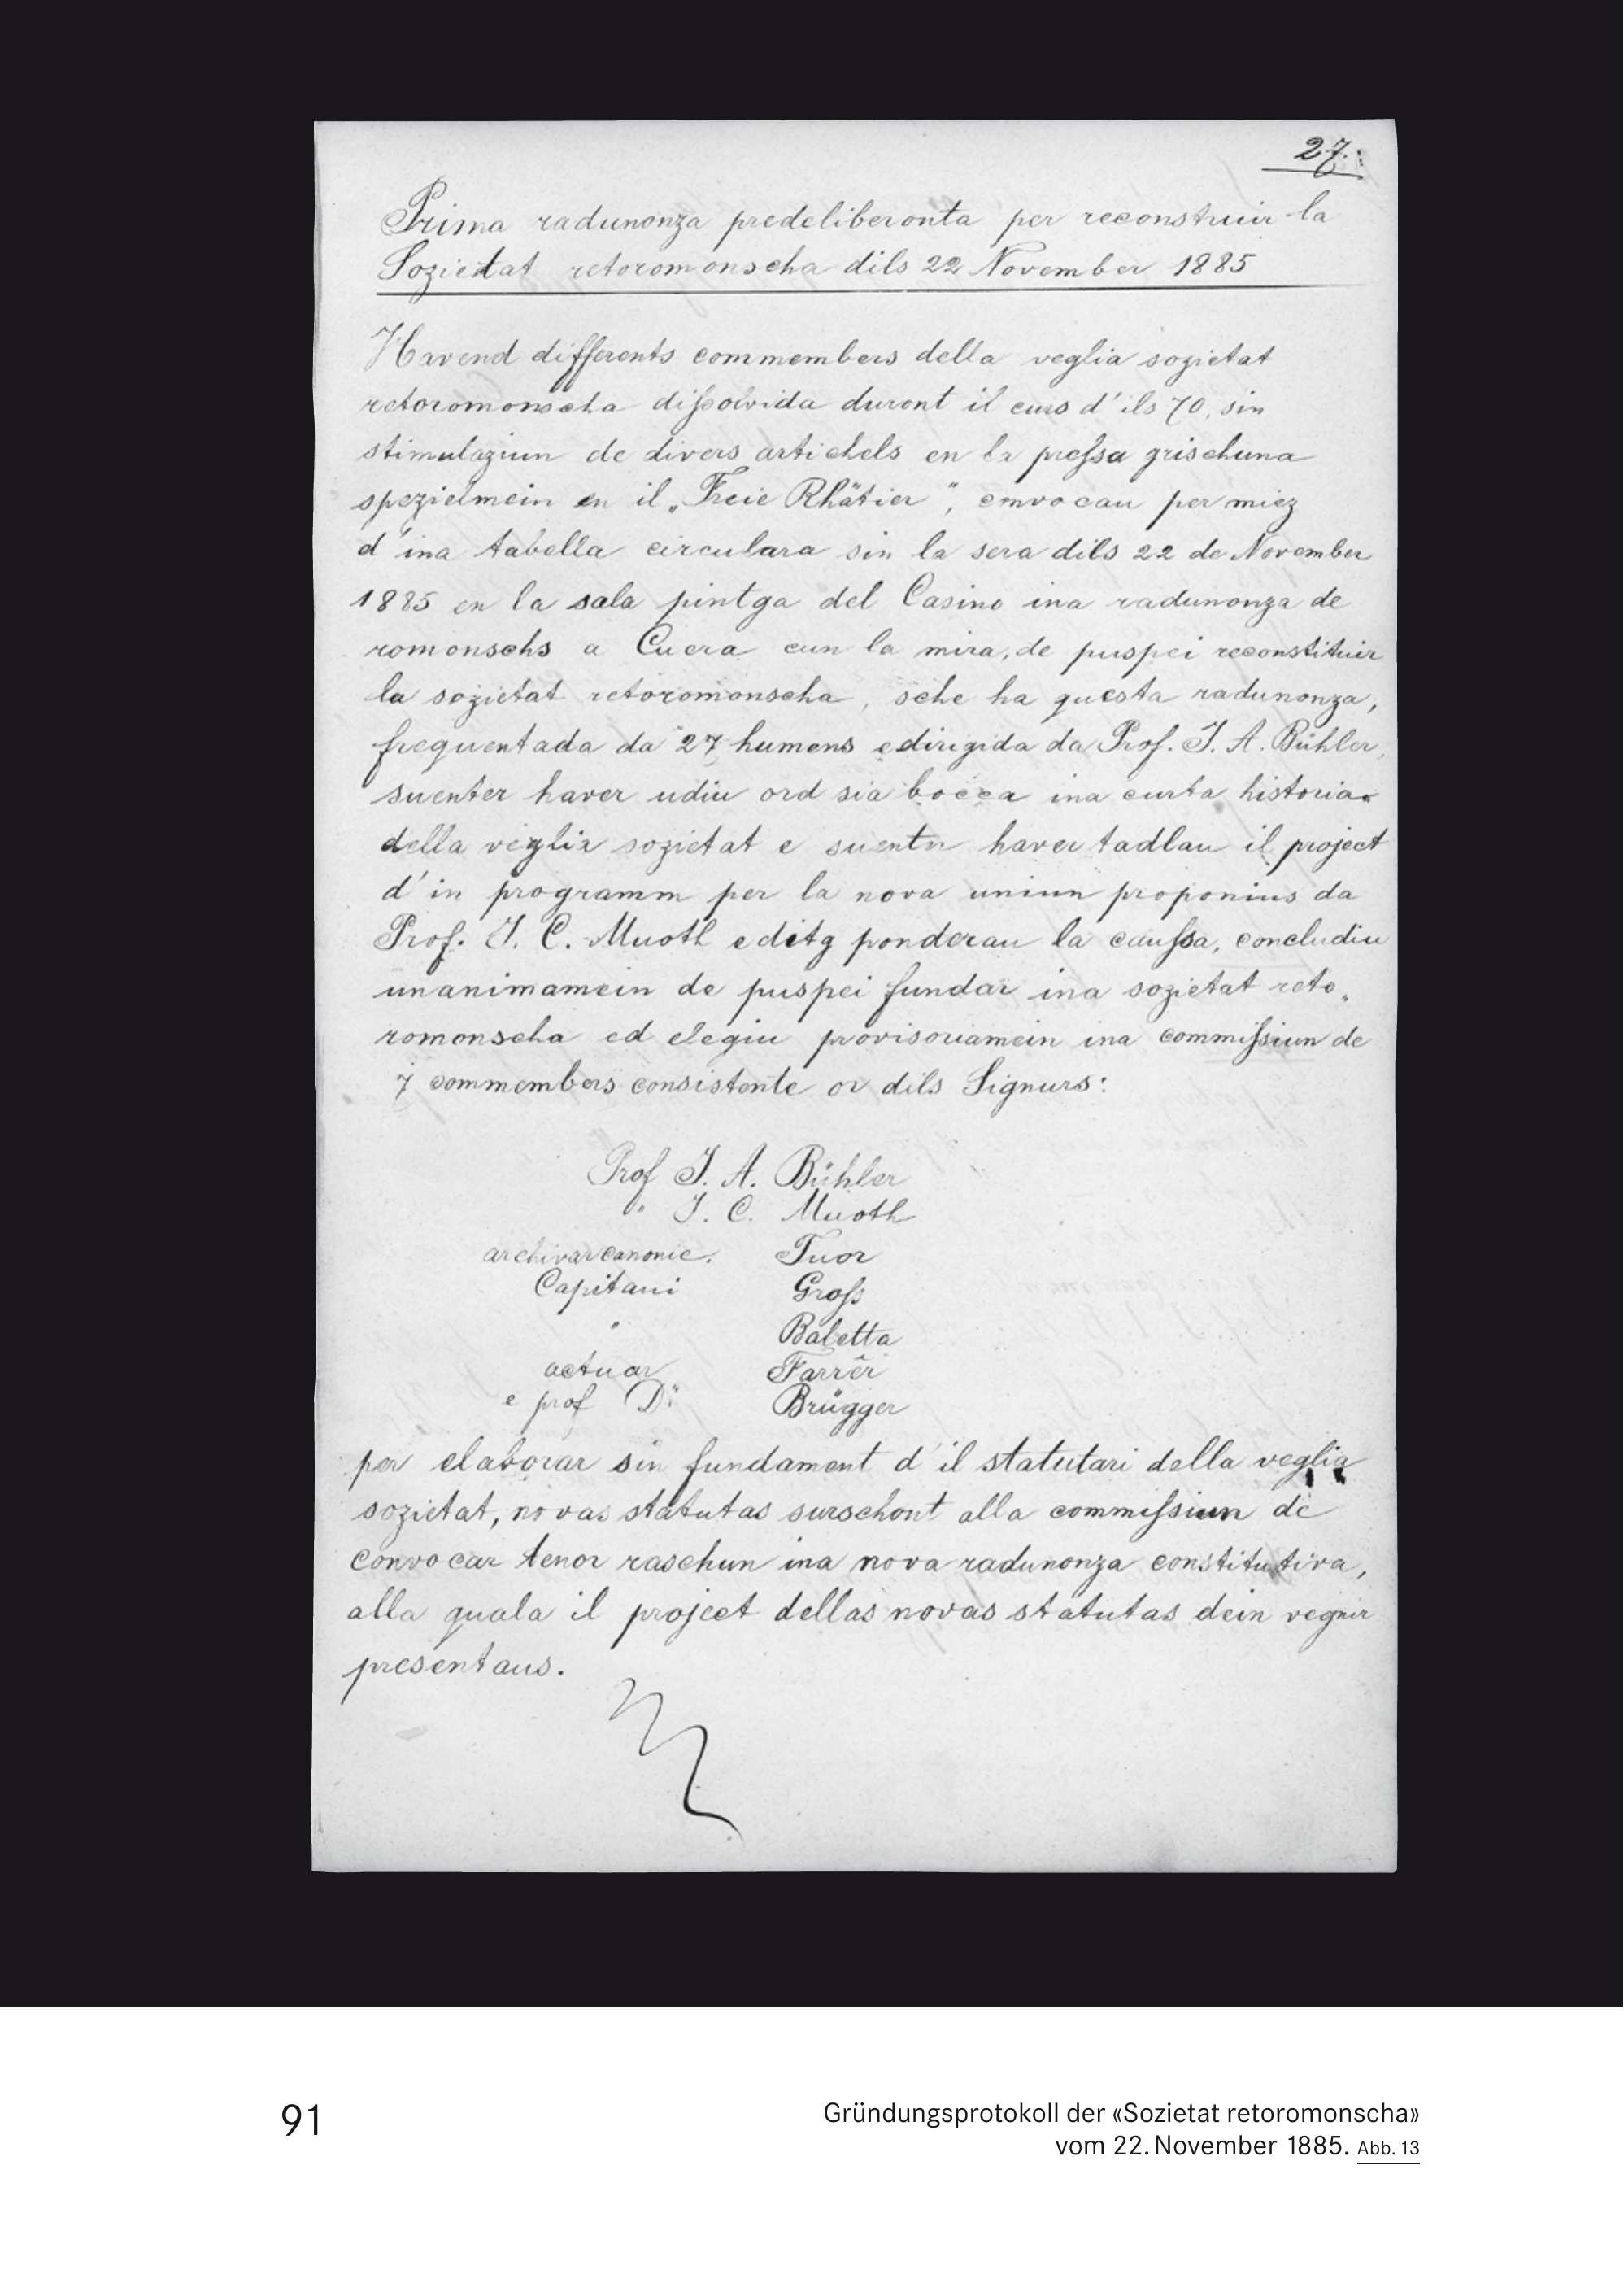 27.
Prima radunonza predeliberonta per reconstruir la
Sozietat retoromonscha dils 22 November 1885
Havend differents commembers della veglia sozietat
retoromonscha diſsolvida duront il curs d'ils 70, sin
stimulaziun de divers artichels en la preſsa grischuna
spezielmein en il „Freie Rhätier", envocau per miez
d'ina tabella circulara sin la sera dils 22 de November
1885 en la sala pintga del Casino ina radunonza de
romonschs a Cuera cun la mira, de puspei reconstituir
la sozietat retoromonscha, sche ha questa radunonza,
frequentada da 27 humens e dirigida da Prof. J. A. Bühler,
suenter haver udiu ord sia bocca ina curta historia
della veglia sozietat e suenter haver tadlau il project
d'in programm per la nova uniun proponius da
Prof. J. C. Muoth e ditg ponderau la cauſsa, concludiu
unanimamein de puspei fundar ina sozietat reto„
romonscha ed elegiu provisoriamein ina commiſsiun de
7 commembers consistente or dils Signurs:
Prof J. A. Bühler
" J. C. Muoth
archivar canonic. Tuor
Capitani Groſs
" Baletta
actuar Farrèr
e prof Dr Brügger
per elaborar sin fundament d'il statutari della veglia
sozietat, novas statutas surschont alla commiſsiun de
convocar tenor raschun ina nova radunonza constitutiva,
alla quala il project dellas novas statutas dein vegnir
presentaus.
91
Gründungsprotokoll der «Sozietat retoromonscha»
vom 22. November 1885. Abb. 13